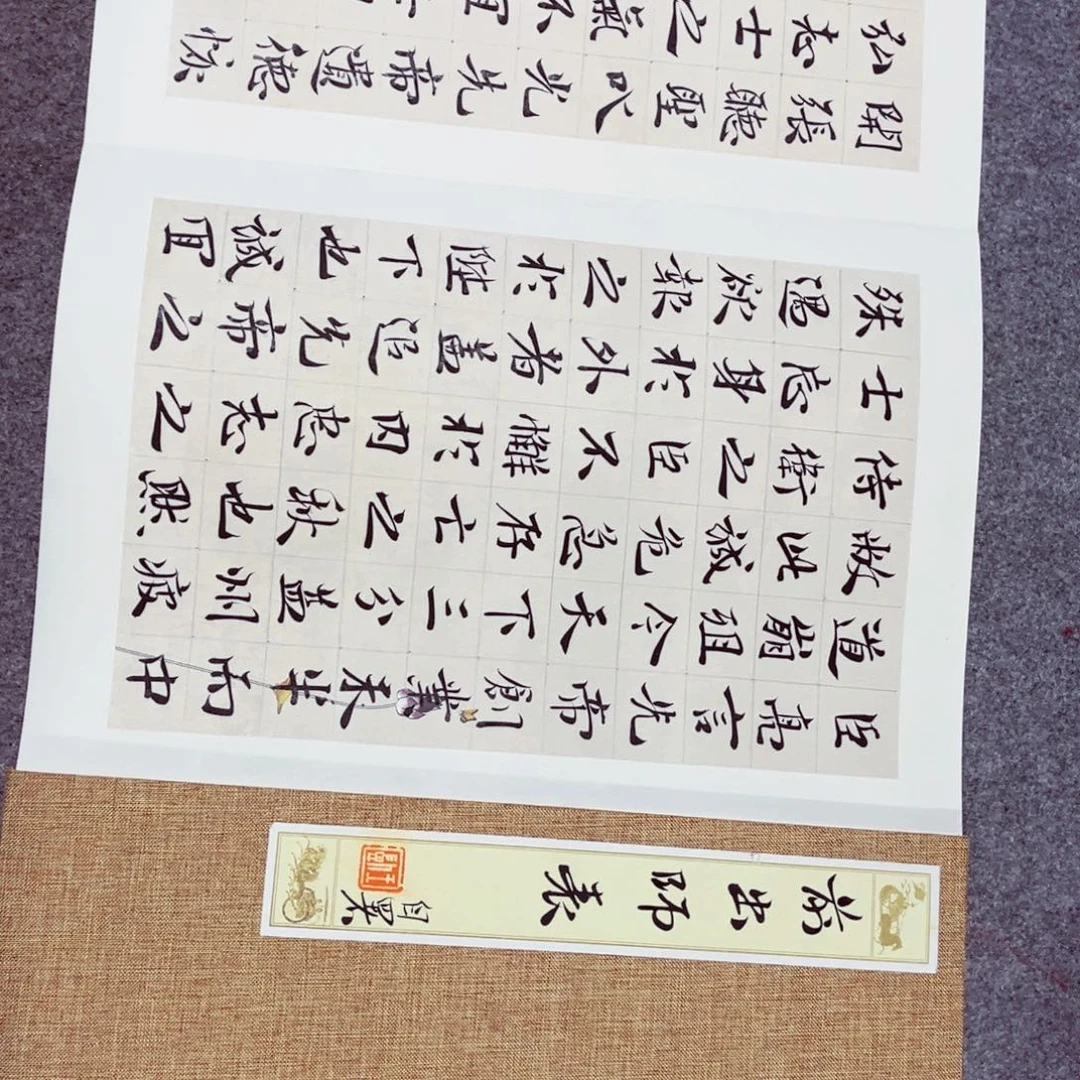 前出師表
臣亮言先帝創業未半而中
道崩殂今天下三分益州疲
敝此誠危急存亡之秋也然
侍衛之臣不懈於內忠志之
士忘身於外者蓋追先帝之
殊遇欲報之於陛下也誠宜
開張聽聖以光先帝遺德恢
弘志士之氣不宜